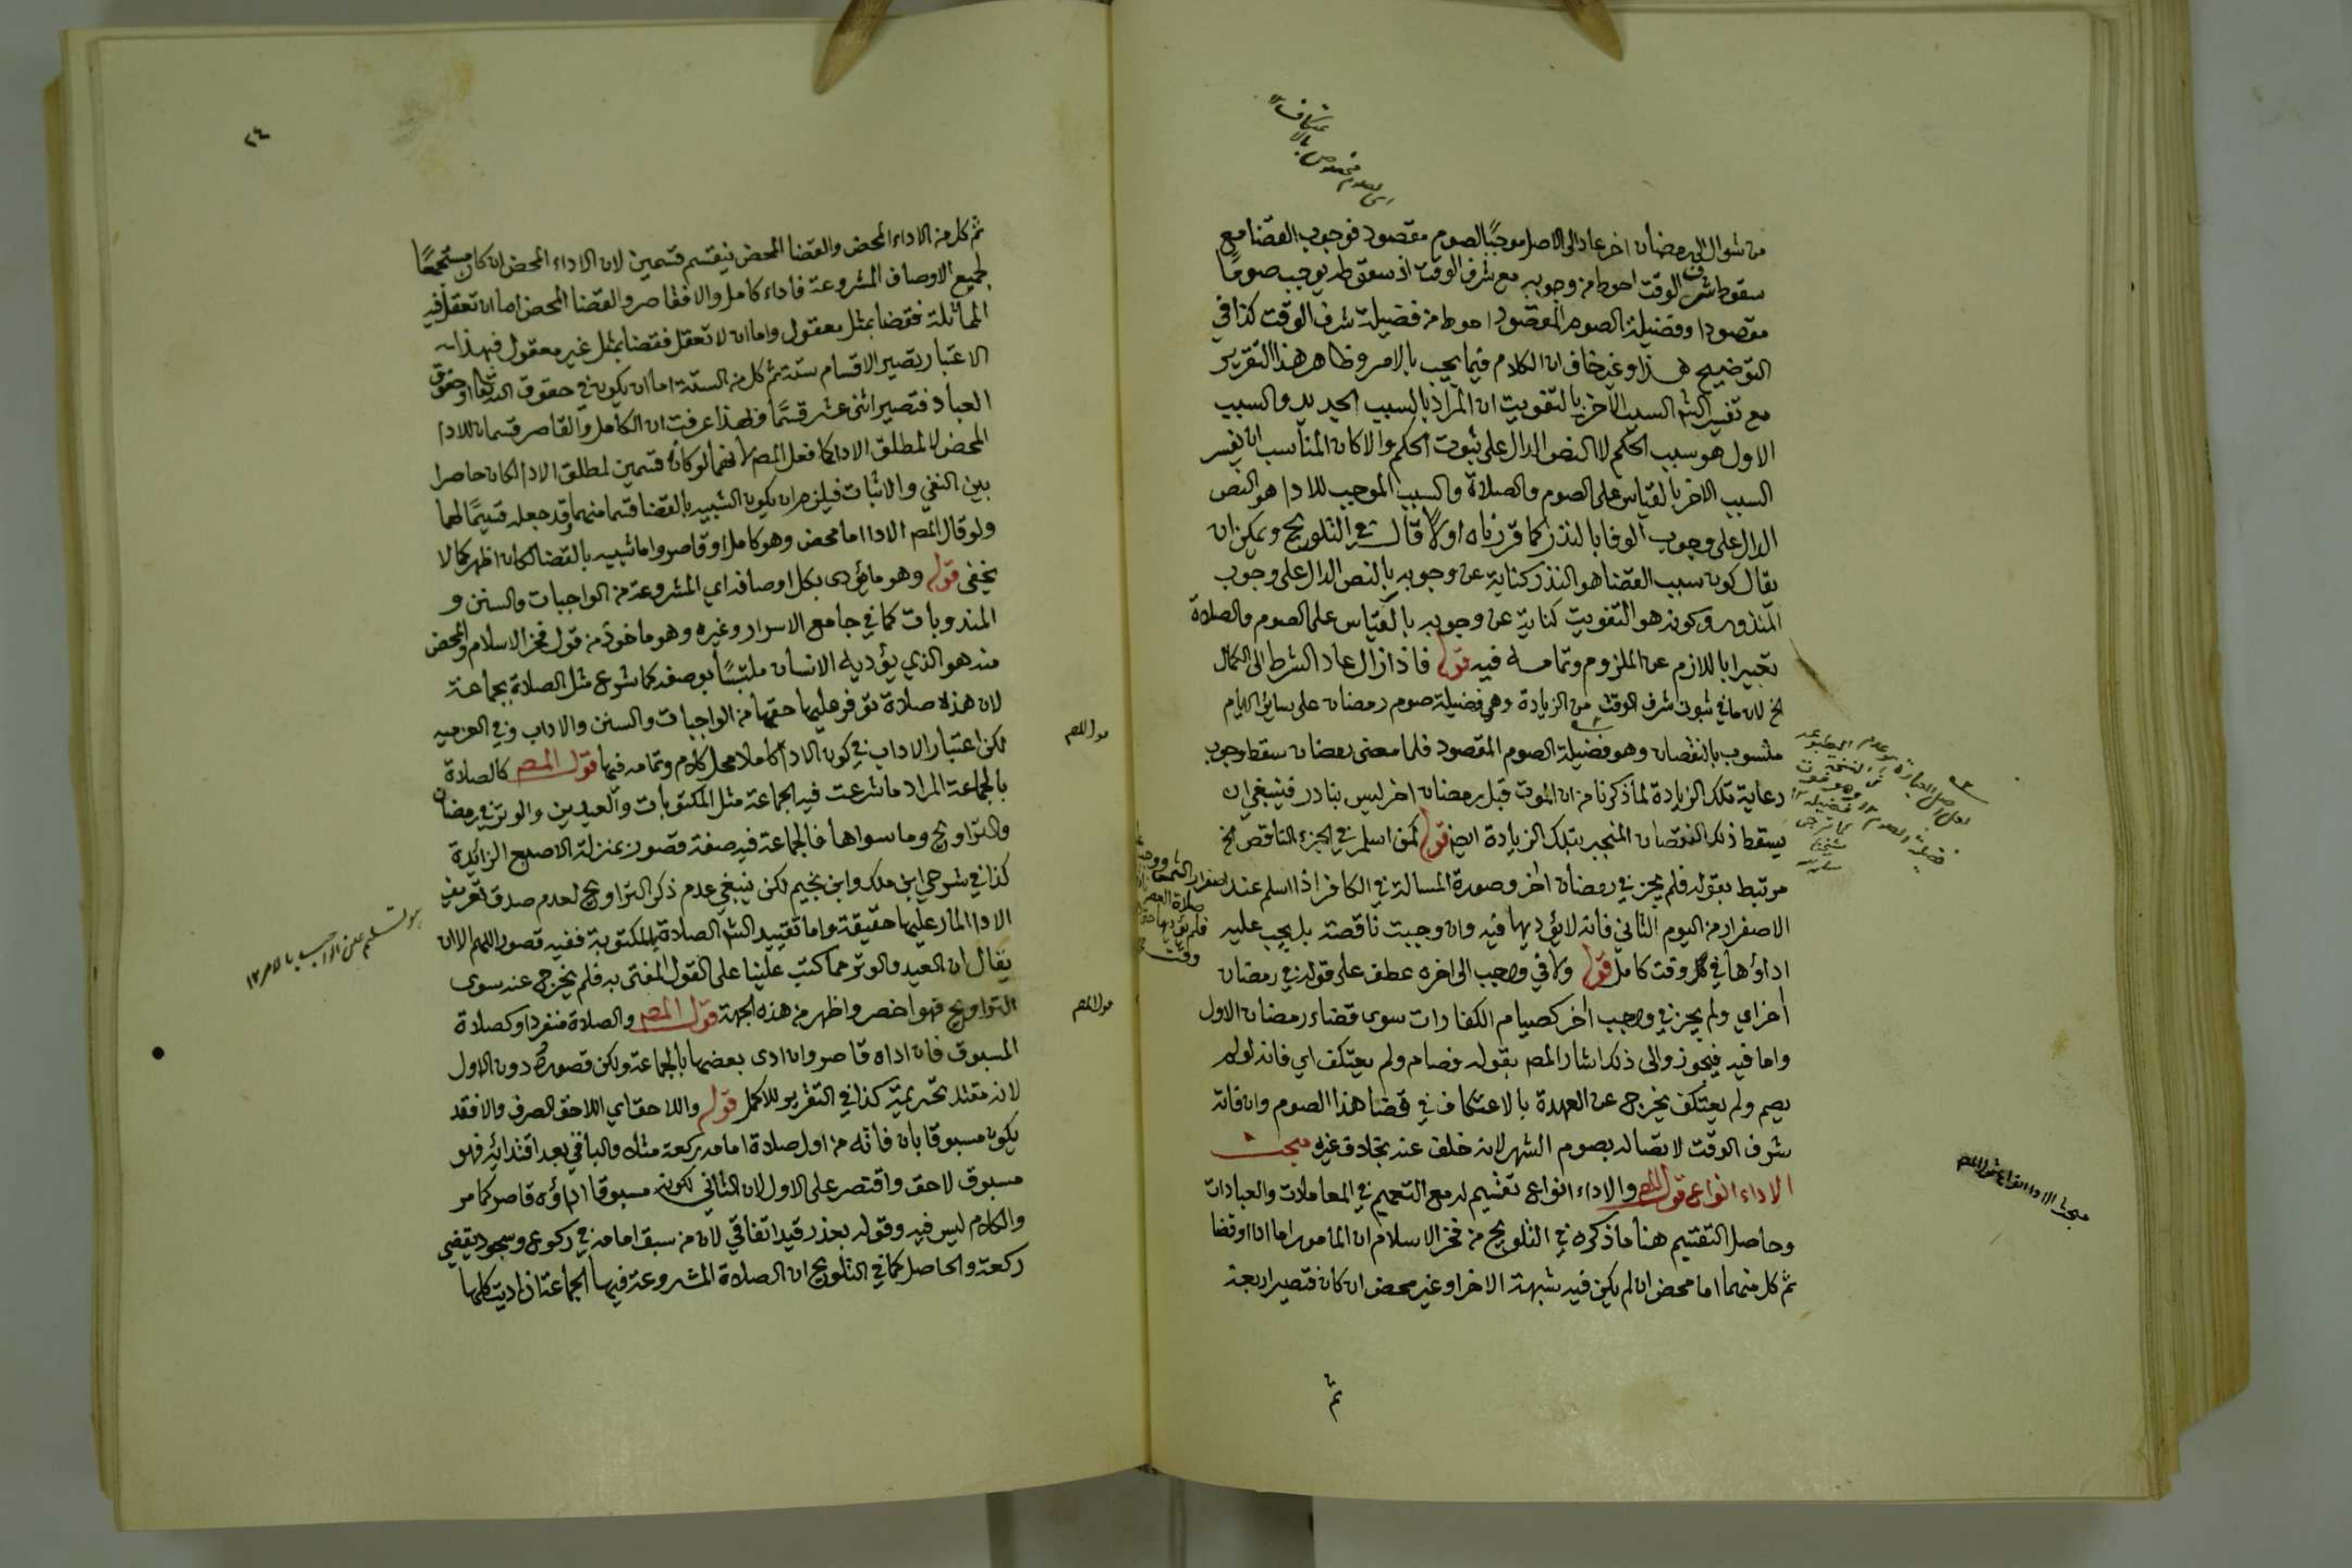 من شوال الى رمضان اخر عاد الى الاصل موجبًا لصوم مقصود فوجوب القضا مع
سقوط شرف الوقت احوط من وجوبه مع شرف الوقت اذ سقوطه يوجب صومًا
مقصودا وفضيلة الصوم المقصود احوط من فضيلة شرف الوقت كذا في
التوضيح هذا وغير خاف ان الكلام فيما يجب بالامر وظاهر هذا التقرير
مع تفسير الش السبب الآخر بالتفويت ان المراد بالسبب الجديد والسبب
الاول هو سبب الحكم لا النص الدال على ثبوت الحكم والا كان المناسب ان يفسر
السبب الاخر بالقياس على الصوم والصلاة والسبب الموجب للادا هو النص
الدال على وجوب الوفا بالنذر كما قررناه اولًا قال في التلويح ويمكن ان
يقال كون سبب القضا هو النذر كناية عن وجوبه بالنص الدال على وجوب
المنذور وكونه هو التفويت كناية عن وجوبه بالقياس على الصوم والصلاة
تعبيرا باللازم عن الملزوم وتمامه فيه قوله فاذا زال عاد الشرط الى الكمال
الخ لان ما في ثبوت شرف الوقت من الزيادة وهي فضيلة صوم رمضان على سائر الايام
منسوب بالنقصان وهو فضيلة الصوم المقصود فلما مضى رمضان سقط وجوب
رعاية تلك الزيادة لما ذكرنا من ان الموت قبل رمضان اخر ليس بنادر فينبغي ان
يسقط ذلك النقصان المنجبر بتلك الزيادة ايضا قوله كمن اسلم في الجزء الناقص الخ
مرتبط بقوله فلم يجز في رمضان اخر وصورة المسالة في الكافر اذا اسلم عند
الاصفرار من اليوم الثاني فانه لا يؤديها فيه وان وجبت ناقصة بل يجب عليه
اداؤها في كل وقت كامل قوله ولا في واجب الى اخره عطف على قوله في رمضان
اخر اي ولم يجز في واجب اخر كصيام الكفارات سوى قضاء رمضان الاول
واما فيه فيجوز والى ذلك اشار المص بقوله فصام ولم يعتكف اي فانه لو لم
يصم ولم يعتكف يخرج عن العهدة بالاعتكاف في قضا هذا الصوم وان فاته
شرف الوقت لاتصاله بصوم الشهر لانه خلف عنه بخلاف غيره مبحث
الاداء انواع قول المص والاداء انواع تقسيم له مع التعميم في المعاملات والعبادات
وحاصل التقسيم هنا ما ذكره في التلويح من فخر الاسلام ان المامور اما ادا او قضا
ثم كل منهما اما محض ان لم يكن فيه شبهة الاخر او غير محض ان كان فتصير اربعة
ثم
اي لصوم مخصوص بالاعتكاف
مبحث الادا انواع قول المص
٢٤
ثم كل من الاداء المحض والقضا المحض ينقسم قسمين لان الاداء المحض ان كان مستجمعًا
لجميع الاوصاف المشروعة فاداء كامل والا فقاصر والقضا المحض اما ان تعقل فيه
المماثلة فقضا بمثل معقول واما ان لا تعقل فقضا بمثل غير معقول فبهذا
الاعتبار تصير الاقسام ستة ثم كل من الستة اما ان يكون في حقوق الله تعالى او حقوق
العباد فتصير اثنى عشر قسمًا فلهذا عرفت ان الكامل والقاصر قسمان للادا
المحض لا لمطلق الادا كما فعل المص لانهما لو كانا قسمين لمطلق الادا لكان حاصرا
بين النفي والاثبات فيلزم ان يكون الشبيه بالقضا قسما منهما وقد جعله قسيمًا لهما
ولو قال المص الادا اما محض وهو كامل او قاصر واما شبيه بالقضا لكان اظهر كما لا
يخفى قوله وهو ما يؤدى بكل اوصافه اي المشروعة من الواجبات والسنن و
المندوبات كما في جامع الاسرار وغيره وهو ماخوذ من قول فخر الاسلام والمحض
منه هو الذي يؤديه الانسان ملتبسًا بوصفه كما شرع مثل الصلاة بجماعة
لان هذه صلاة توفر عليها حقها من الواجبات والسنن والاداب وفي العزمية
لكن اعتبار الاداب في كون الادا كاملا محل كلام وتمامه فيها قول المص كالصلاة
بالجماعة المراد ما شرعت فيه الجماعة مثل المكتوبات والعيدين والوتر في رمضان
والتراويح وما سواها فالجماعة فيه صفة قصور بمنزلة الاصبع الزائدة
كذا في شرحي ابن ملك وابن نجيم لكن ينبغي عدم ذكر التراويح لعدم صدق تعريف
الادا المار عليها حقيقة واما تقييد الش الصلاة بالمكتوبة ففيه قصور اللهم الا ان
يقال ان العيد والوتر مما كتب علينا على القول المفتى به فلم يخرج عنه سوى
التراويح فهو اخصر واظهر من هذه الجهة قول المص والصلاة منفردا وكصلاة
المسبوق فان اداه قاصر وان ادى بعضها بالجماعة ولكن قصوره دون الاول
لانه مقتد تحريمة كذا في التقرير للاكمل قوله واللاحق اي اللاحق الصرف والا فقد
يكون مسبوقا بان فاته من اول صلاة امامه ركعة مثلا والباقي بعد اقتدائه فهو
مسبوق لاحق واقتصر على الاول لان الثاني لكونه مسبوقا اداؤه قاصر كما مر
والكلام ليس فيه وقوله بعذر قيد اتفاقي لان من سبق امامه في ركوع وسجود يقضي
ركعة والحاصل كما في التلويح ان الصلاة المشروعة فيها الجماعة ان اديت كلها
قول المص
قول المص
هو تسليم عين الواجب بالامر ١٢